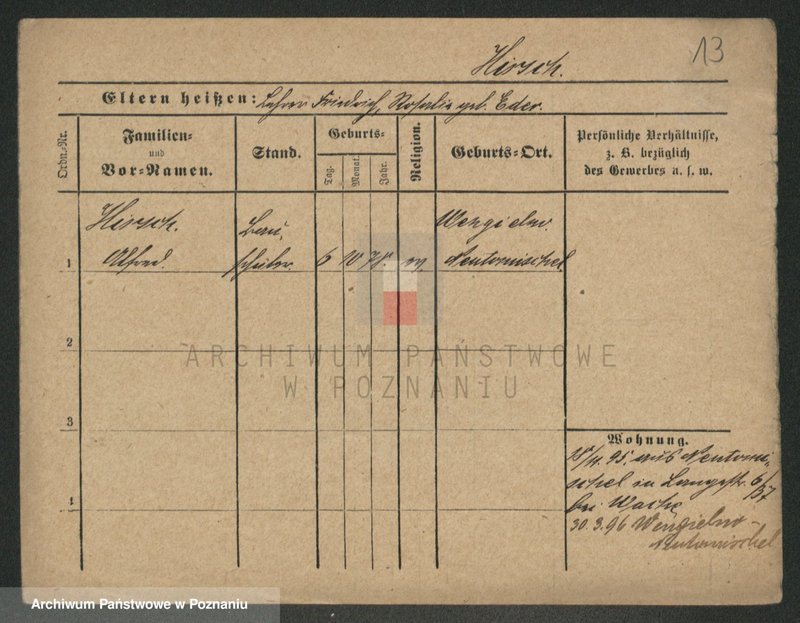 13
Hirsch.
Eltern heißen: Lehrer Friedrich, Rosalie geb. Eder.
Ordn.-Nr.
Familien-
und
Vor-Namen.
Stand.
Geburts-
Tag.
Monat.
Jahr.
Religion.
Geburts-Ort.
Persönliche Verhältnisse,
z. B. bezüglich
des Gewerbes u. s. w.
Hirsch. Bau, Wengielno
1 Alfred. schüler. 6 10 78. Neutomischel
2
3
4
Wohnung.
95. aus Neutomi-
schel in Langestr. 6/
bei
30.3.96 Wengielno-
Neutomischel
ARCHIWUM PAŃSTWOWE
W POZNANIU
Archiwum Państwowe w Poznaniu